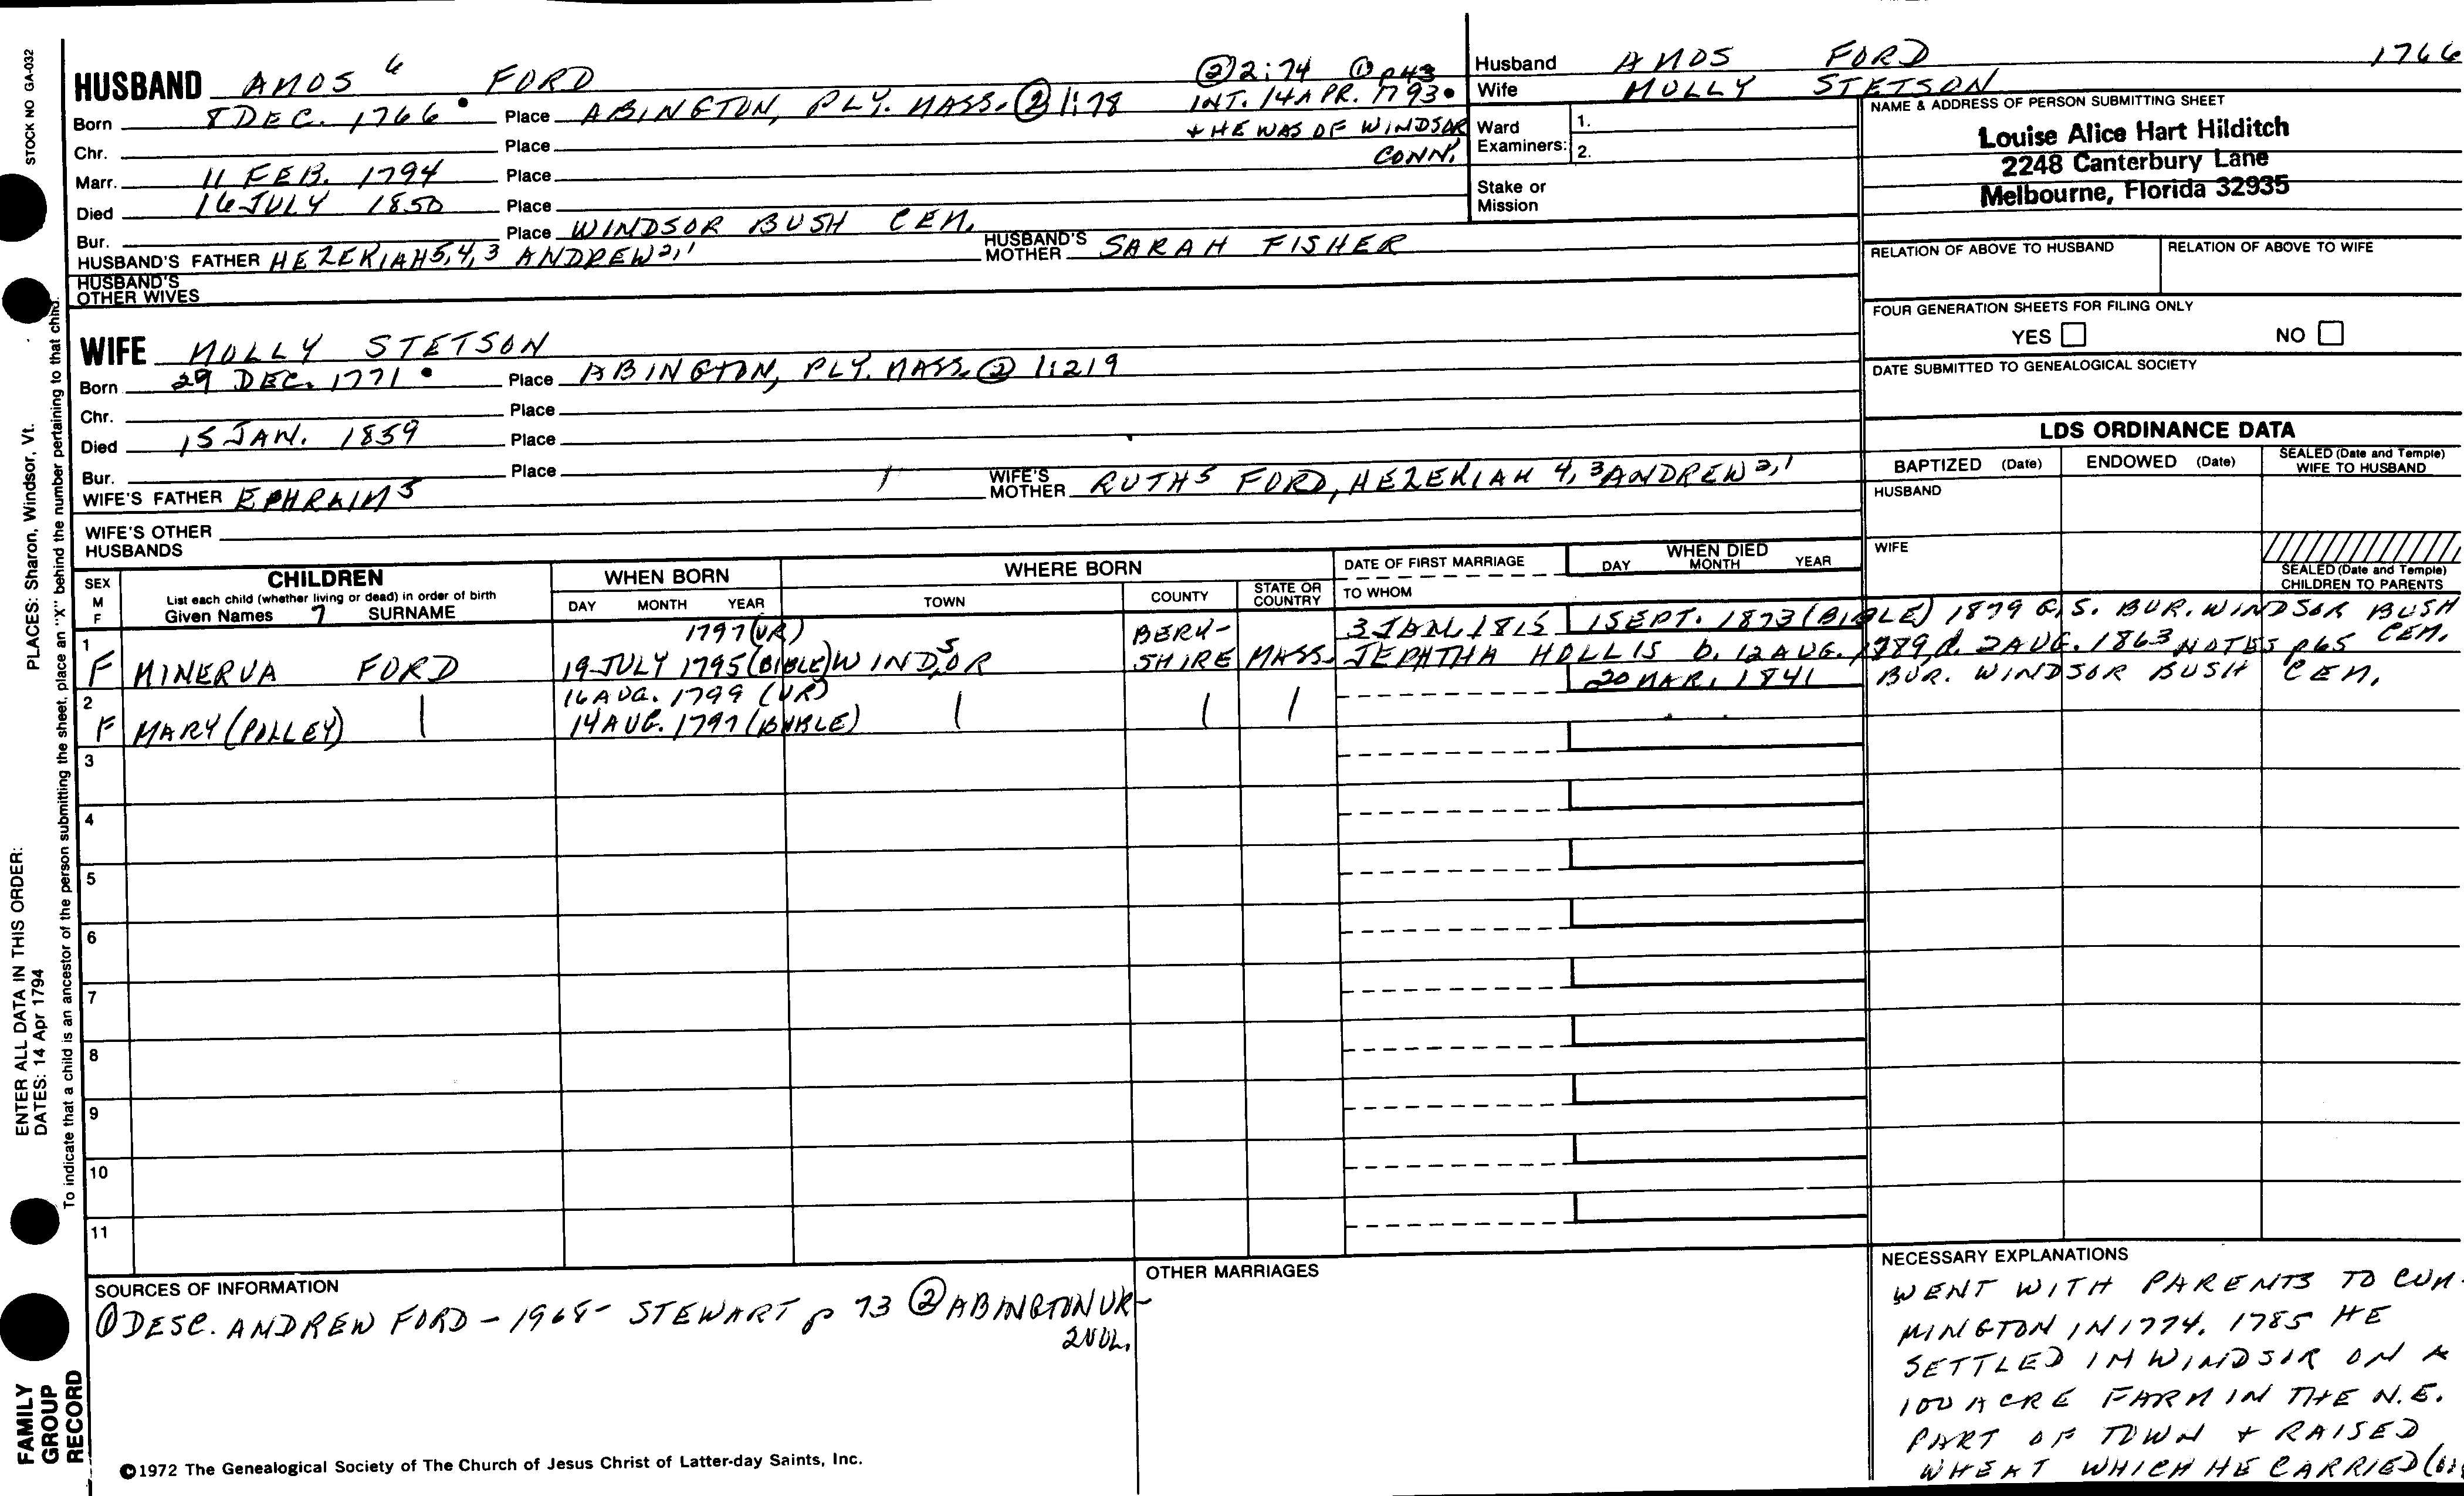 STOCK NO GA-032
PLACES: Sharon, Windsor, Vt.
ENTER ALL DATA IN THIS ORDER:
DATES: 14 Apr 1794
To indicate that a child is an ancestor of the person submitting the sheet, place an "X" behind the number pertaining to that child.
FAMILY
GROUP
RECORD
HUSBAND AMOS 6 FORD
② 2:74 ① p43
Born 8 DEC. 1766 • Place ABINGTON, PLY. MASS. ② 1:78
INT. 14 APR. 1793 •
+ HE WAS OF WINDSOR
CONN.
Chr. Place
Marr. 11 FEB. 1794 Place
Died 16 JULY 1850 Place
Bur. Place WINDSOR BUSH CEM.
HUSBAND'S FATHER HEZEKIAH 5,4,3 ANDREW 2,1
HUSBAND'S MOTHER SARAH FISHER
HUSBAND'S OTHER WIVES
WIFE MOLLY STETSON
Born 29 DEC. 1771 • Place ABINGTON, PLY. MASS. ② 1:219
Chr. Place
Died 15 JAN. 1859 Place
Bur. Place
WIFE'S FATHER EPHRAIM 5
WIFE'S MOTHER RUTH 5 FORD, HEZEKIAH 4,3 ANDREW 2,1
WIFE'S OTHER HUSBANDS
Husband AMOS FORD 1766
Wife MOLLY STETSON
Ward Examiners: 1.
2.
Stake or Mission
NAME & ADDRESS OF PERSON SUBMITTING SHEET
Louise Alice Hart Hilditch
2248 Canterbury Lane
Melbourne, Florida 32935
RELATION OF ABOVE TO HUSBAND RELATION OF ABOVE TO WIFE
FOUR GENERATION SHEETS FOR FILING ONLY
YES NO
DATE SUBMITTED TO GENEALOGICAL SOCIETY
LDS ORDINANCE DATA
BAPTIZED (Date) ENDOWED (Date) SEALED (Date and Temple) WIFE TO HUSBAND
HUSBAND
WIFE
SEALED (Date and Temple) CHILDREN TO PARENTS
SEX M F
CHILDREN
List each child (whether living or dead) in order of birth
Given Names 7 SURNAME
WHEN BORN
DAY MONTH YEAR
WHERE BORN
TOWN COUNTY STATE OR COUNTRY
DATE OF FIRST MARRIAGE
TO WHOM
WHEN DIED
DAY MONTH YEAR
1
1797 (VR) BERK- 3 JAN. 1815 1 SEPT. 1873 (BIBLE) 1879 G.S. BUR. WINDSOR BUSH CEM.
F MINERVA FORD 19 JULY 1795 (BIBLE) WINDSOR SHIRE MASS. JEPHTHA HOLLIS b. 12 AUG. 1789, d. 2 AUG. 1863 NOTES p65
2
16 AUG. 1799 (VR) 20 MAR. 1841 BUR. WINDSOR BUSH CEM.
F MARY (POLLEY) 14 AUG. 1797 (BIBLE)
3
4
5
6
7
8
9
10
11
SOURCES OF INFORMATION
① DESC. ANDREW FORD - 1968 - STEWART p 73 ② ABINGTON VR-
2 VOL.
OTHER MARRIAGES
NECESSARY EXPLANATIONS
WENT WITH PARENTS TO CUM-
MINGTON IN 1774. 1785 HE
SETTLED IN WINDSOR ON A
100 ACRE FARM IN THE N.E.
PART OF TOWN + RAISED
WHEAT WHICH HE CARRIED
©1972 The Genealogical Society of The Church of Jesus Christ of Latter-day Saints, Inc.